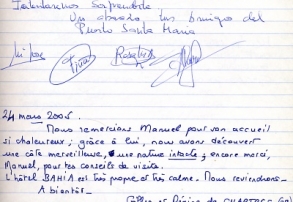 Un abrazo tus amigos del
Puerto Santa Maria
24 mars 2005.
Nous remercions Manuel pour son accueil
si chaleureux ; grâce à lui, nous avons découvert
une côte merveilleuse, une nature intacte ; encore merci,
Manuel, pour tes conseils de visite.
L'hôtel BAHIA est très propre et très calme. Nous reviendrons.
A bientôt
de CHARTRES